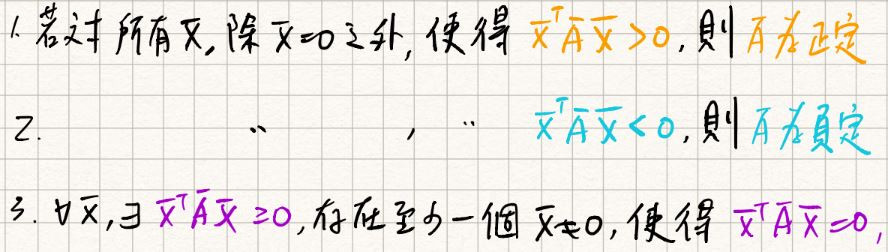 1. 若对 所有 x̄, 除 x̄=0 之外, 使得 x̄ᵀĀx̄>0, 則 Ā为正定
2. 〃 , 〃 x̄ᵀĀx̄<0, 則 Ā为負定
3. ∀x̄, ∃ x̄ᵀĀx̄ ≥0, 存在至少一個 x̄≠0, 使得 x̄ᵀĀx̄=0,